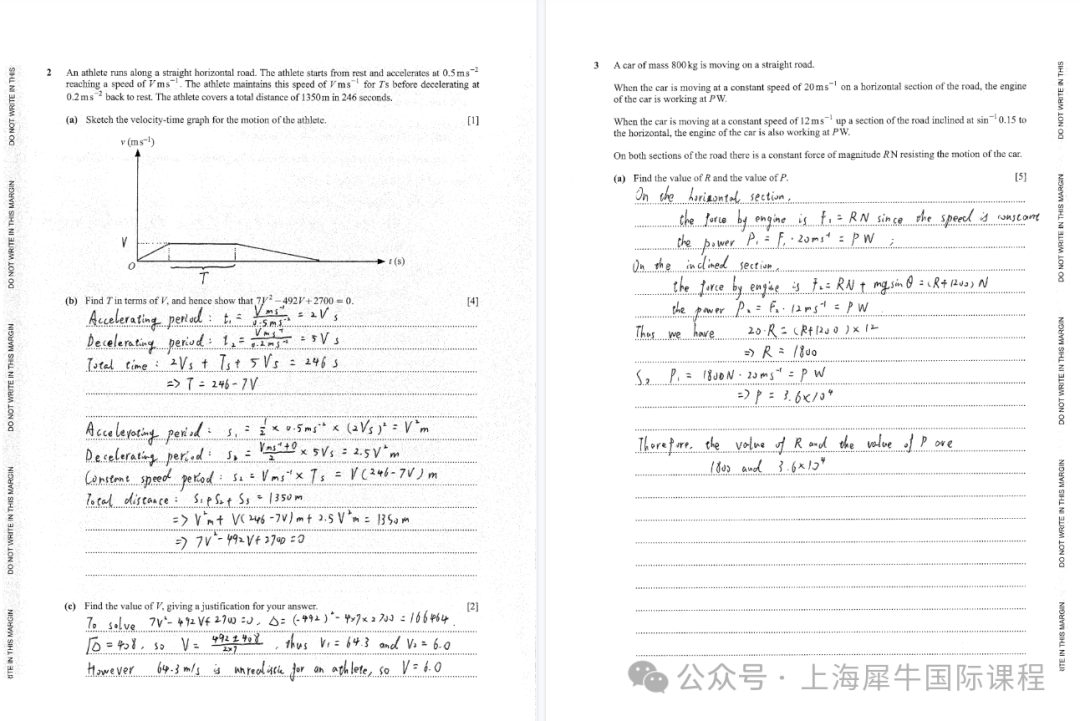 DO NOT WRITE IN THIS
DO NOT WRITE IN THIS MARGIN
DO NOT WRITE IN THIS MARGIN
DO NOT WRITE IN THIS MARGIN
ITE IN THIS MARGIN
2 An athlete runs along a straight horizontal road. The athlete starts from rest and accelerates at 0.5 m s⁻²
reaching a speed of V m s⁻¹. The athlete maintains this speed of V m s⁻¹ for T s before decelerating at
0.2 m s⁻² back to rest. The athlete covers a total distance of 1350 m in 246 seconds.
(a) Sketch the velocity-time graph for the motion of the athlete. [1]
v (m s⁻¹)
V
O
t (s)
T
(b) Find T in terms of V, and hence show that 7V² − 492V + 2700 = 0. [4]
Accelerating period : t₁ = Vms⁻¹/0.5ms⁻² = 2V s
Decelerating period : t₂ = Vms⁻¹/0.2ms⁻² = 5V s
Total time : 2Vs + Ts + 5Vs = 246 s
=> T = 246 - 7V
Accelerating period : s₁ = 1/2 × 0.5ms⁻² × (2Vs)² = V²m
Decelerating period : s₃ = Vms⁻¹+0/2 × 5Vs = 2.5V²m
Constant speed period : s₂ = Vms⁻¹ × Ts = V(246-7V) m
Total distance : S₁+S₂+S₃ = 1350m
=> V²m + V(246-7V)m + 2.5V²m = 1350m
=> 7V² - 492V + 2700 = 0
(c) Find the value of V, giving a justification for your answer. [2]
To solve 7V² - 492V + 2700 = 0, Δ = (-492)² - 4×7×2700 = 166464.
√Δ = 408, so V = 492±408/2×7, thus V₁ = 64.3 and V₂ = 6.0
However 64.3 m/s is unrealistic for an athlete, so V = 6.0
3 A car of mass 800 kg is moving on a straight road.
When the car is moving at a constant speed of 20 m s⁻¹ on a horizontal section of the road, the engine
of the car is working at P W.
When the car is moving at a constant speed of 12 m s⁻¹ up a section of the road inclined at sin⁻¹ 0.15 to
the horizontal, the engine of the car is also working at P W.
On both sections of the road there is a constant force of magnitude R N resisting the motion of the car.
(a) Find the value of R and the value of P. [5]
On the horizontal section,
the force by engine is F₁ = RN since the speed is constant
the power P₁ = F₁ · 20ms⁻¹ = P W ;
On the inclined section,
the force by engine is F₂ = RN + mg sin θ = (R+1200) N
the power P₂ = F₂ · 12ms⁻¹ = P W
Thus we have 20·R = (R+1200) × 12
=> R = 1800
So P₁ = 1800N · 20ms⁻¹ = P W
=> P = 3.6×10⁴
Therefore, the value of R and the value of P are
1800 and 3.6×10⁴
DO NOT WRITE IN THIS
DO NOT WRITE IN THIS MARGIN
DO NOT WRITE IN THIS MARGIN
DO NOT WRITE IN THIS MARGIN
ITE IN THIS MARGIN
公众号 · 上海犀牛国际课程